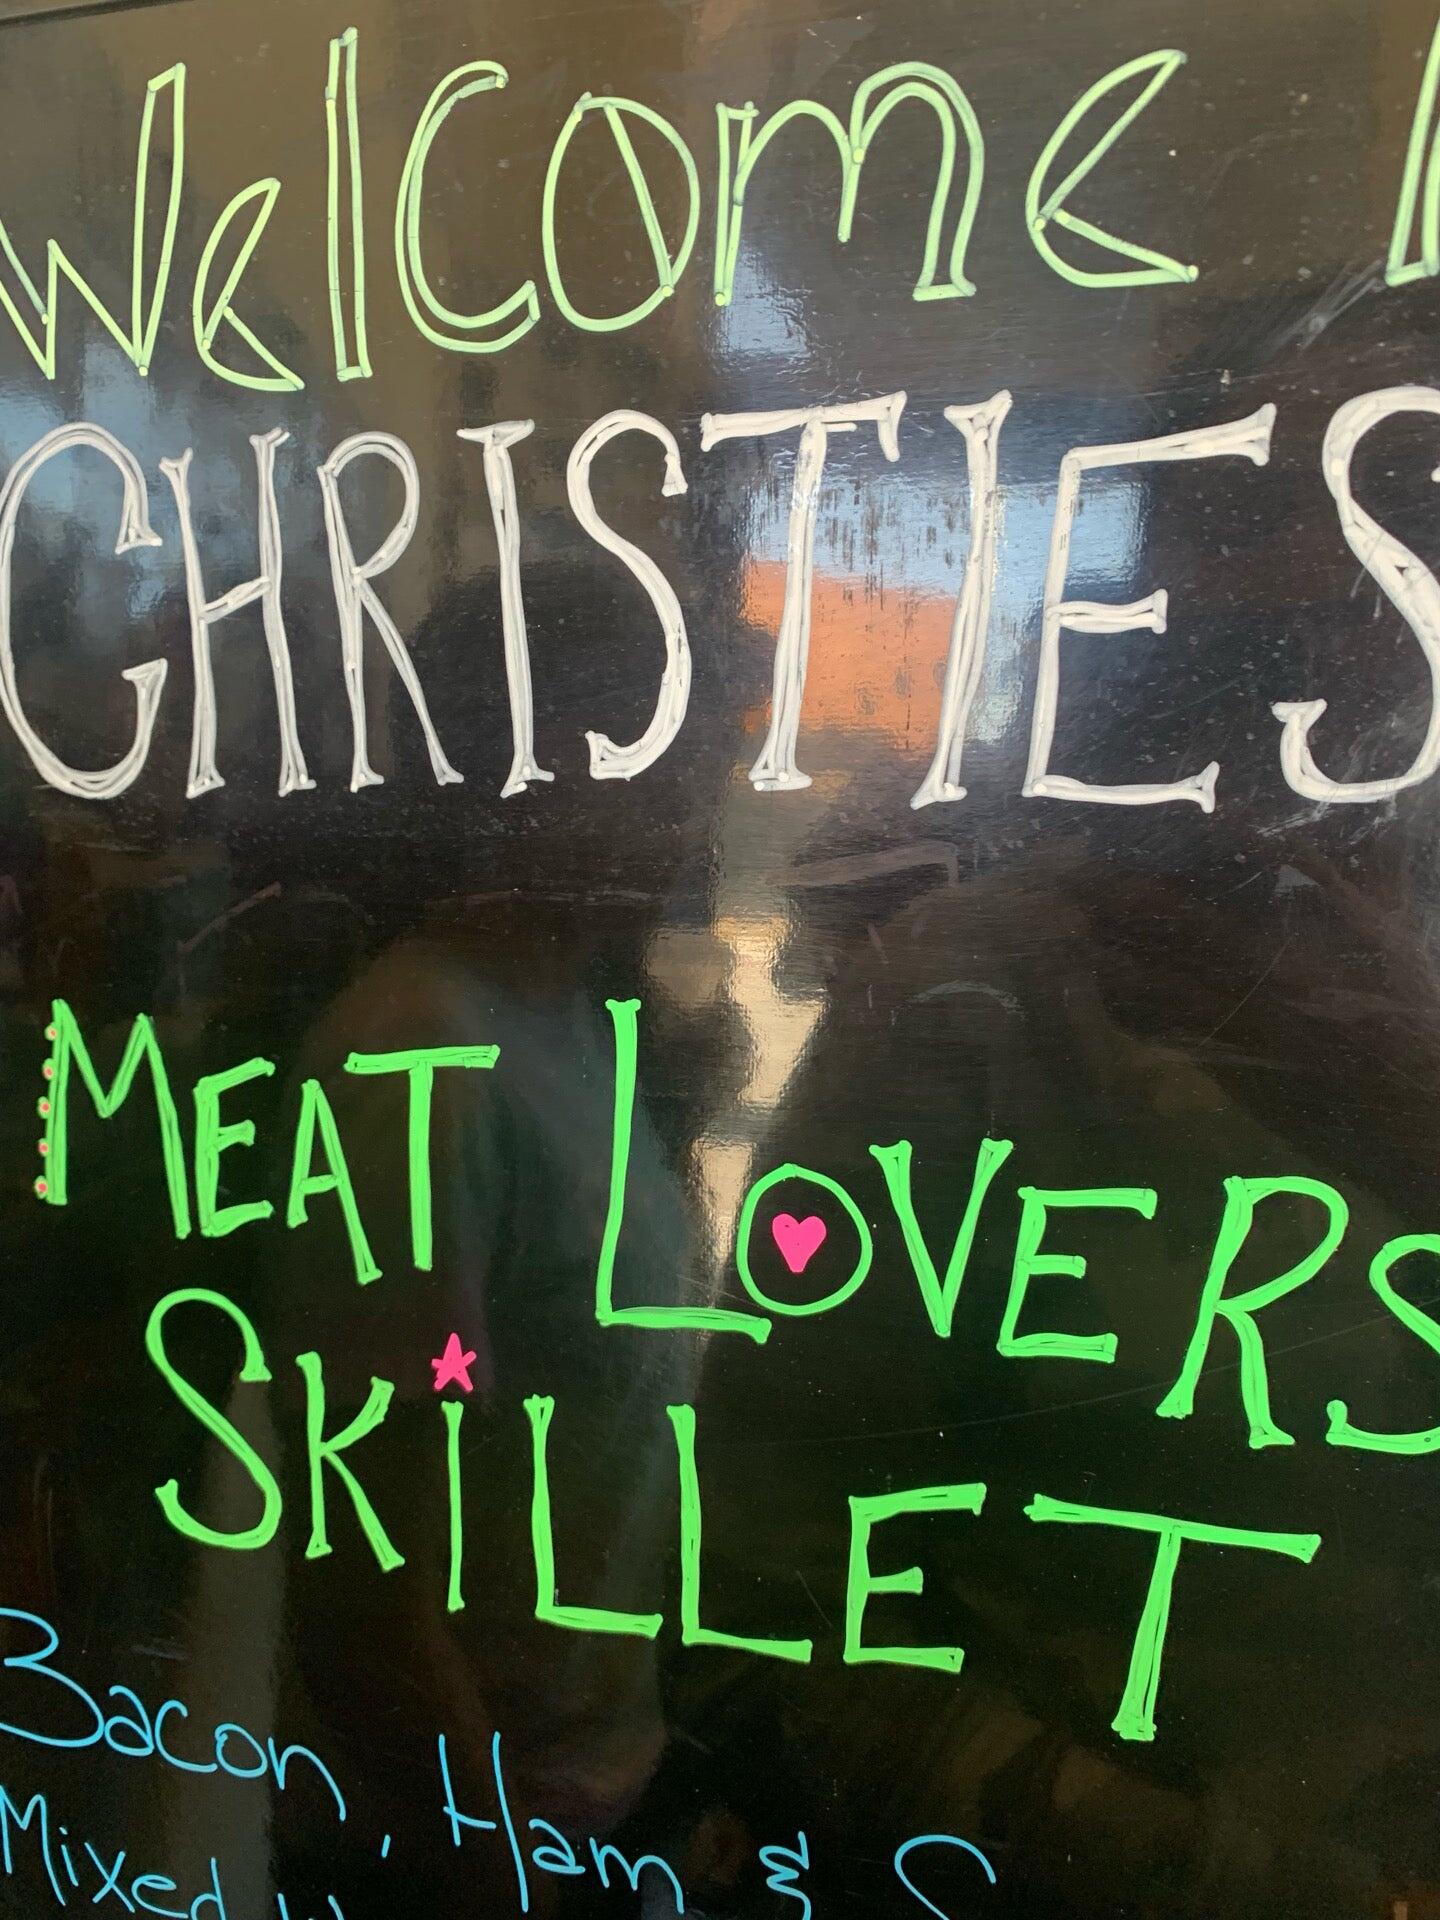 Welcome
CHRISTIES
MEAT LOVERS
SKiLLET
Bacon, Ham &
Mixed